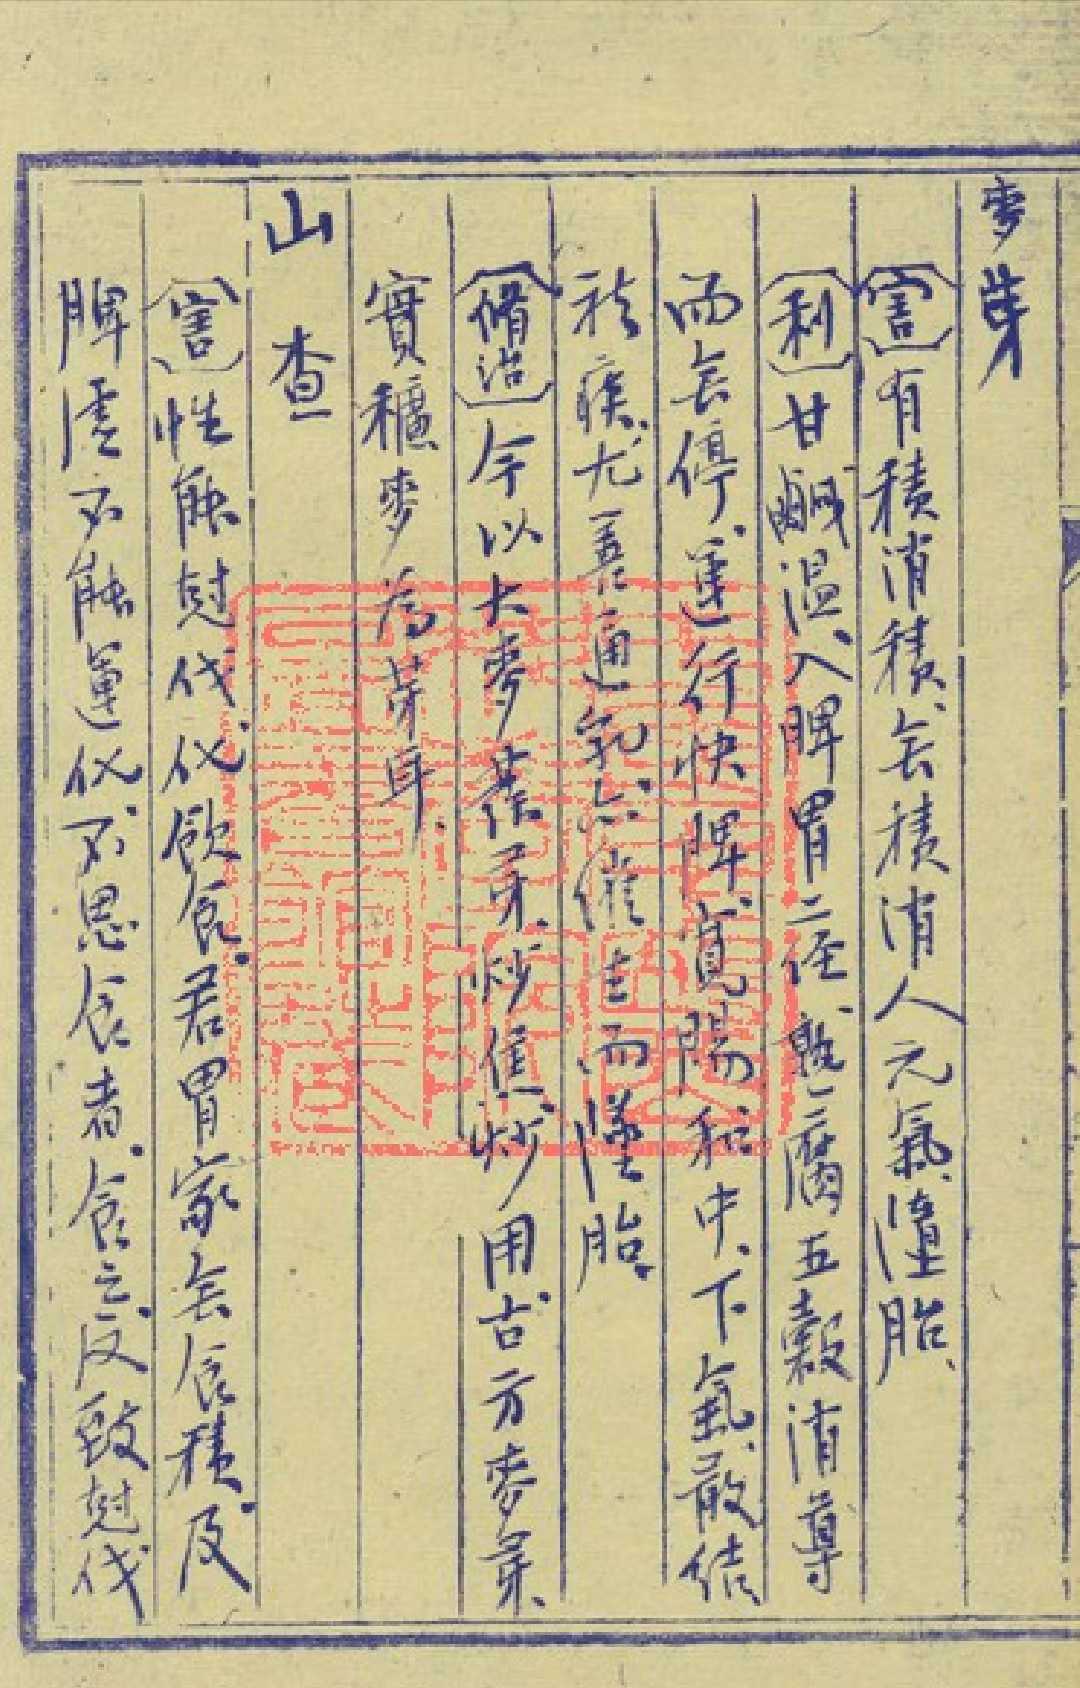 麥芽
[害]有積消積、無積消人元氣、墮胎、
[利]甘鹹溫、入脾胃二經、熟腐五穀、消導
而無停、運行快脾、寬腸和中、下氣、散結
祛痰、尤善通乳、亦催生而墮胎、
[脩治]今以大麥發芽、炒焦炒用、古方麥芽、
實穬麥為芽耳、
山查
[害]性能尅伐、化飲食、若胃家無食積、及
脾虛不能運化、不思食者、食之、反致尅伐